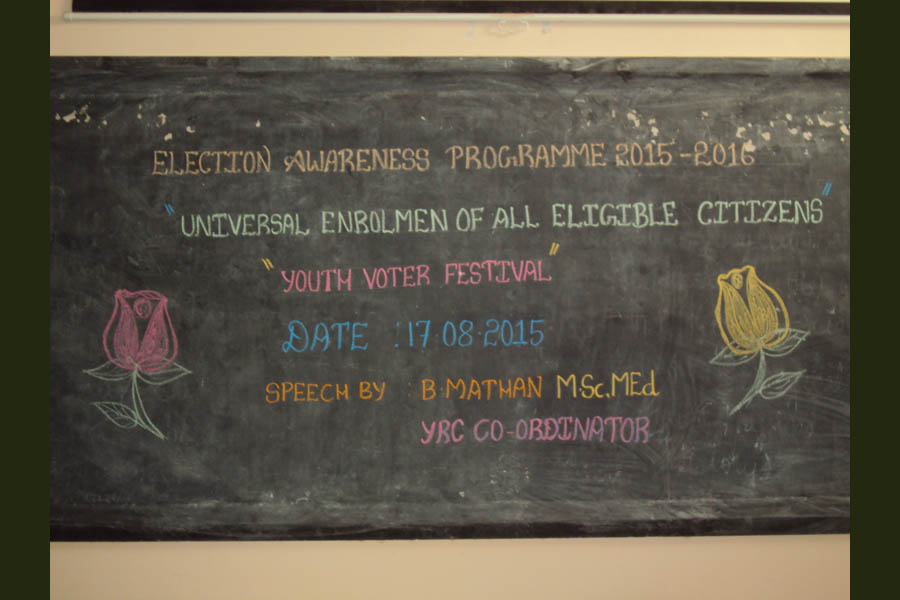 ELECTION AWARENESS PROGRAMME 2015-2016
"UNIVERSAL ENROLMEN OF ALL ELIGIBLE CITIZENS"
"YOUTH VOTER FESTIVAL"
DATE : 17.08.2015
SPEECH BY : B.MATHAN M.Sc,M.Ed
YRC CO-ORDINATOR